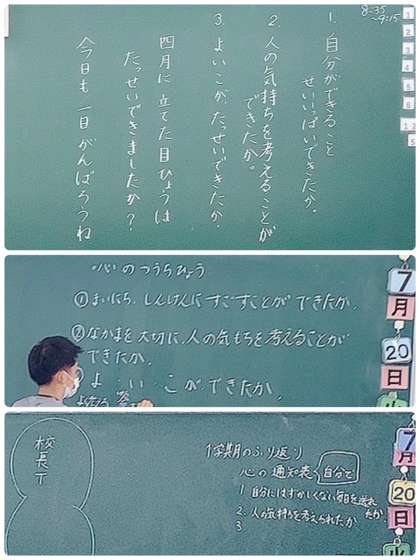 8-35
~9:15
1
2
3
4
5
6
1. 自分ができること
せいいっぱいできたか。
2. 人の気持ちを考えることが
できたか。
3. よいこが、たっせいできたか。
四月に立てた目ひょうは
たっせいできましたか?
今日も一日がんばろうね
心のつうちひょう
①まいにち、しんけんにすごすことができたか。
②なかまを大切に、人の気もちを考えることが
できたか。
よ い こができたか。
7
月
20
日
校長T
1学期のふり返り
心の通知表 自分で
1. 自分にはずかしくない毎日を送れ
たか
2. 人の気持ちを考えられたか
3
7
月
20
日